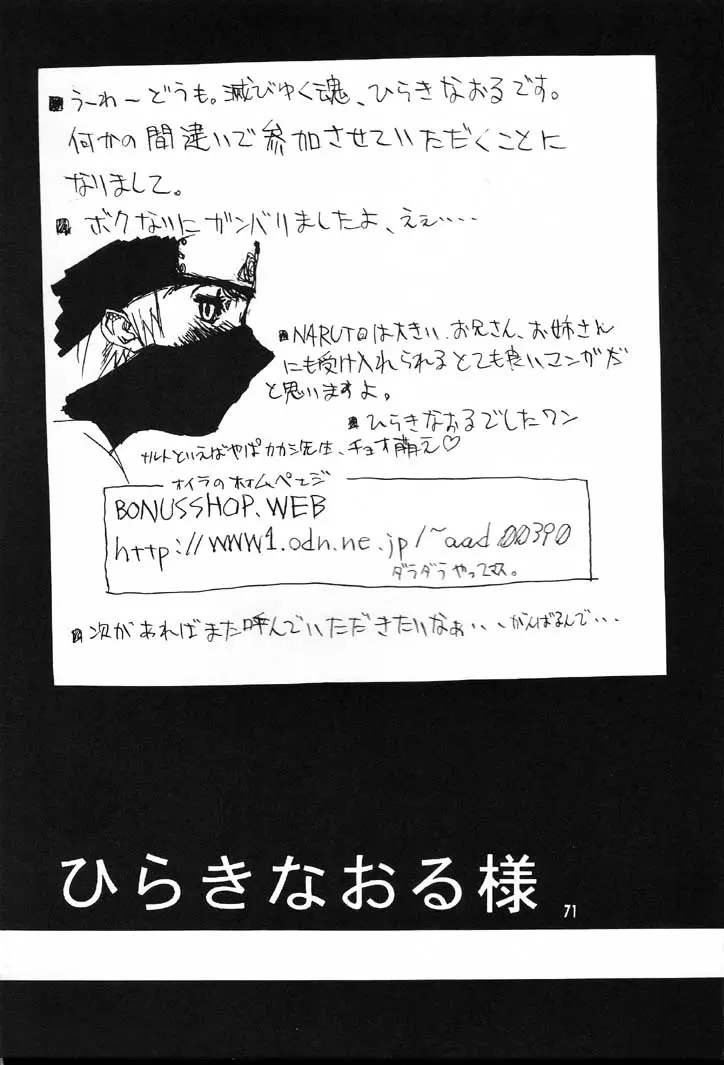 うーわーどうも。滅びゆく魂、ひらきなおるです。
何かの間違いで参加させていただくことに
なりまして。
ボクなりにガンバリましたよ、えぇ・・・・
NARUTOは大きいお兄さん、お姉さん
にも受け入れられるとても良いマンガだ
と思いますよ。
ひらきなおるでしたワン
ナルトといえばやぱカカシ先生、チョオ萌え♡
オイラのホームページ
BONUSSHOP.WEB
http://www1.odn.ne.jp/~aad00390
ダラダラやってマス。
次があればまた呼んでいただきたいなぁ・・、がんばるんで・・・
ひらきなおる様
71